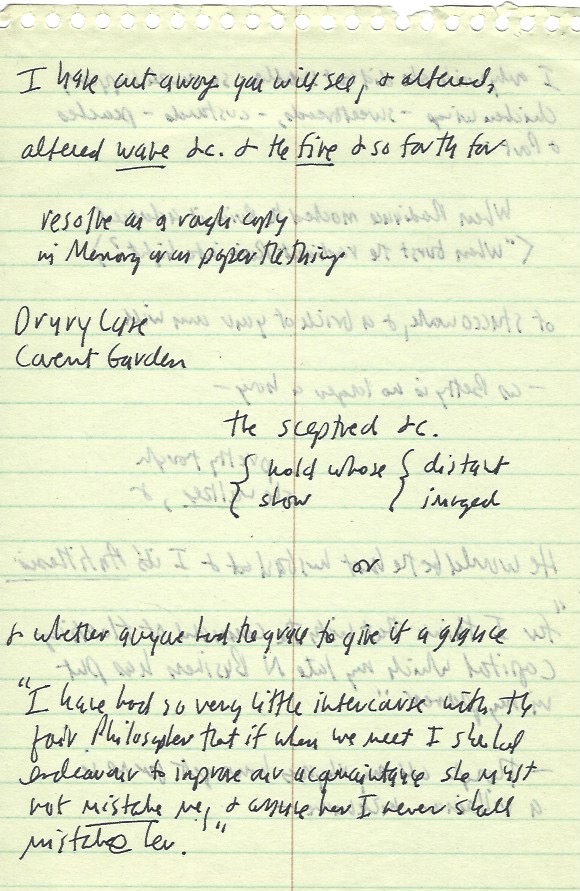 I have cut away you will see, & altered,
altered wave &c. & the fire & so forth for
resolve as a rough copy
in Memory was paper the thing
Drury Lane
Covent Garden
the sceptred &c.
{ hold whose { distant
{ show { imaged
or
& whether anyone had the grace to give it a glance
"I have had so very little intercourse with the
fair Philosopher that if when we meet I should
endeavour to improve our acquaintance she must
not mistake me, & assure her I never shall
mistake her."